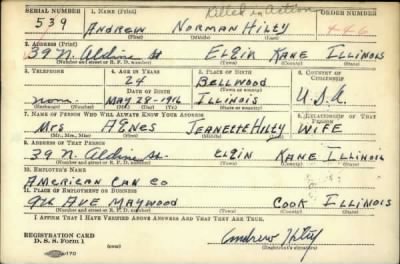 Killed in Action
SERIAL NUMBER 1. NAME (Print) ORDER NUMBER
539 ANDREW NORMAN HILTY 446
(First) (Middle) (Last)
2. ADDRESS (Print)
39 N. Aldine St ELGIN KANE ILLINOIS
(Number and street or R. F. D. number) (Town) (County) (State)
3. TELEPHONE 4. AGE IN YEARS 5. PLACE OF BIRTH 6. COUNTRY OF CITIZENSHIP
24 BELLWOOD
DATE OF BIRTH (Town or county)
none MAY 28-1916 ILLINOIS U.S.A
(Exchange) (Number) (Mo.) (Day) (Yr.) (State or country)
7. NAME OF PERSON WHO WILL ALWAYS KNOW YOUR ADDRESS 8. RELATIONSHIP OF THAT PERSON
Mrs AGNES JEANETTE HILTY WIFE
(Mr., Mrs., Miss) (First) (Middle) (Last)
9. ADDRESS OF THAT PERSON
39 N. Aldine St. ELGIN KANE ILLINOIS
(Number and street or R. F. D. number) (Town) (County) (State)
10. EMPLOYER'S NAME
AMERICAN CAN CO
11. PLACE OF EMPLOYMENT OR BUSINESS
9th AVE MAYWOOD COOK ILLINOIS
(Number and street or R. F. D. number) (Town) (County) (State)
I AFFIRM THAT I HAVE VERIFIED ABOVE ANSWERS AND THAT THEY ARE TRUE.
REGISTRATION CARD
D. S. S. Form 1 Andrew Hilty
(Registrant's signature)